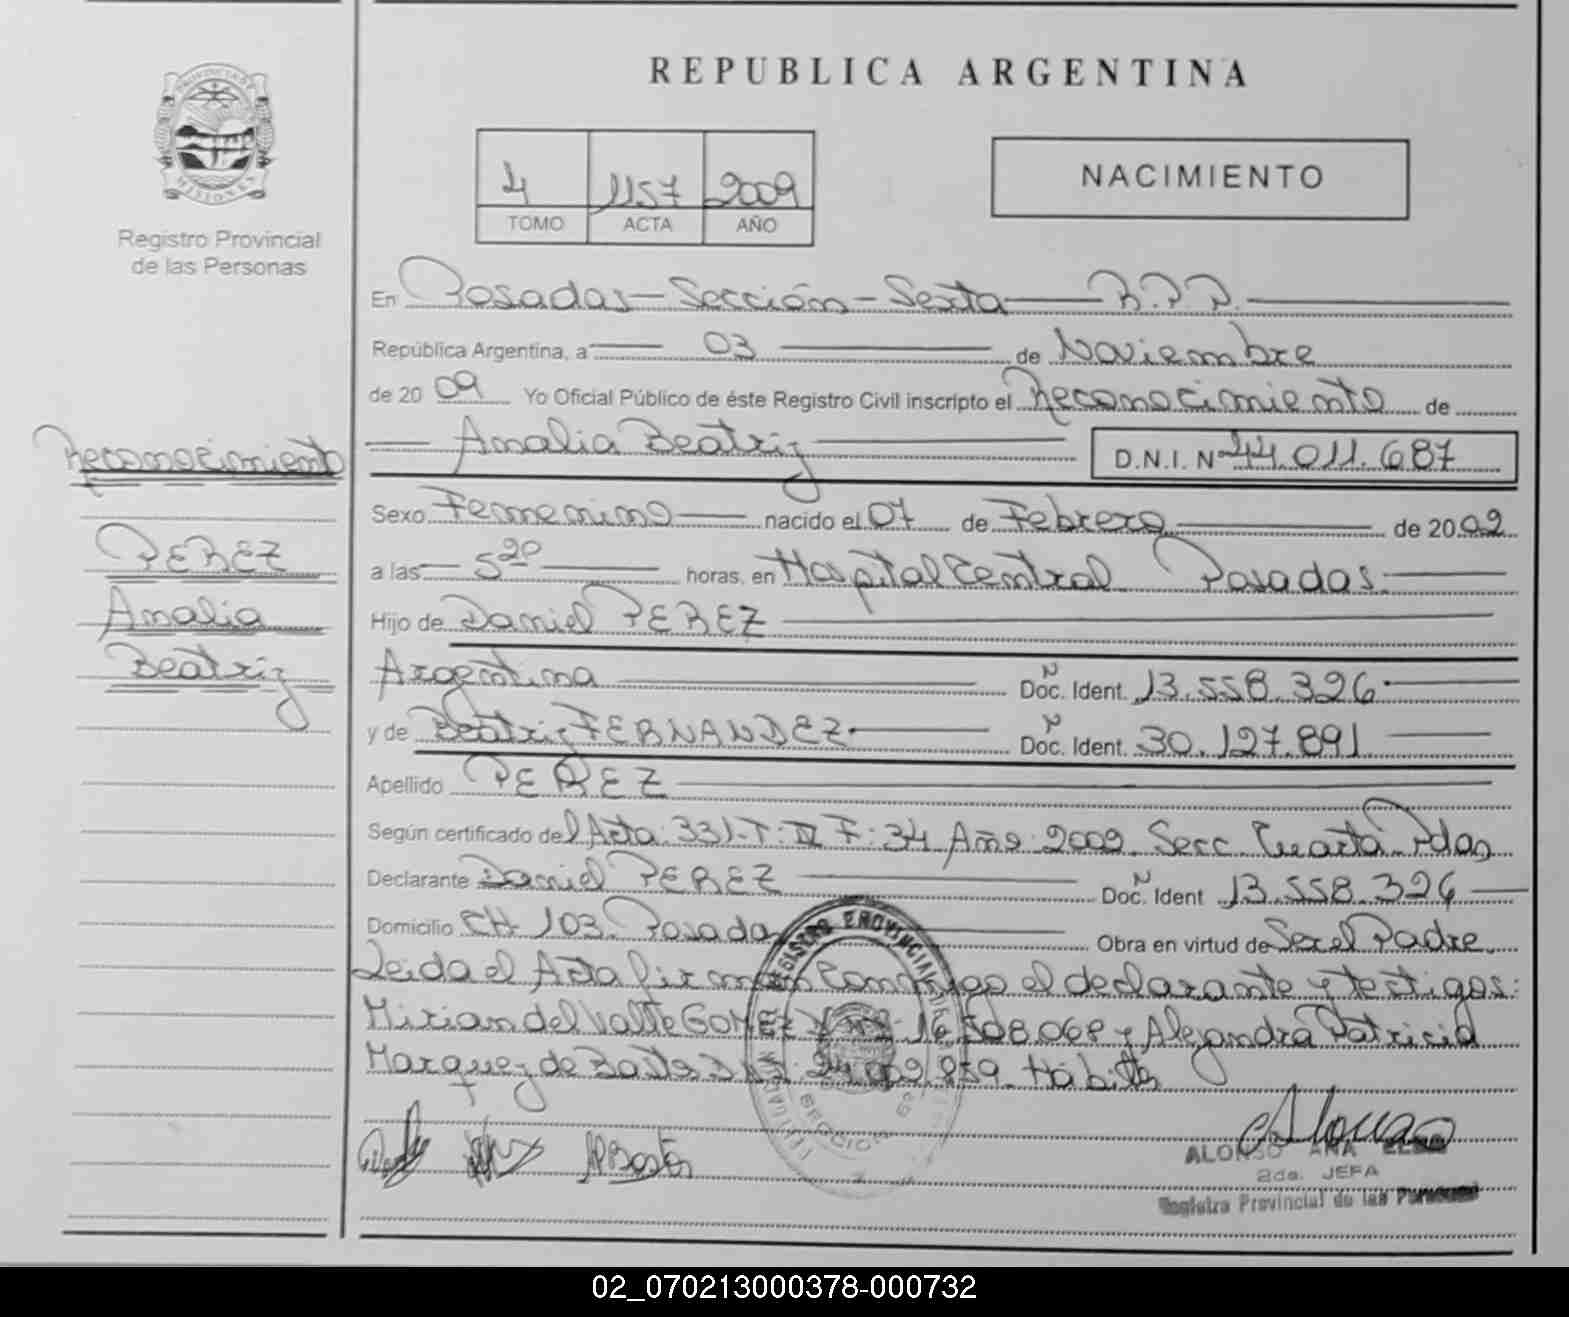 PROVINCIA DE
MISIONES
Registro Provincial
de las Personas
REPUBLICA ARGENTINA
4 1157 2009
TOMO ACTA AÑO
NACIMIENTO
En Posadas - Sección - Sexta R.P.P.
República Argentina, a 03 de Noviembre
de 20 09 Yo Oficial Público de éste Registro Civil inscripto el Reconocimiento de
Amalia Beatriz D.N.I. Nº 44.011.687
Reconocimiento
PEREZ
Amalia
Beatriz
Sexo Femenino nacido el 07 de Febrero de 20 02
a las 5 20 horas, en Hospital Central Posadas.
Hijo de Daniel PEREZ
Argentina N Doc. Ident. 13.558.326
y de Beatriz FERNANDEZ N Doc. Ident. 30.127.891
Apellido PEREZ
Según certificado del Acta: 331-T: IV F: 34 Año 2002 Secc. Cuarta Pdas
Declarante Daniel PEREZ N Doc. Ident 13.558.326
Domicilio CH 103. Posadas Obra en virtud de Ser el Padre.
Leida el Acta firman conmigo el declarante y testigos:
Mirian del Valle GOMEZ 16.508.068 y Alejandra Patricia
Marquez de
ALONSO ANA ELSA
2da. JEFA
Registro Provincial de las Personas
02_070213000378-000732